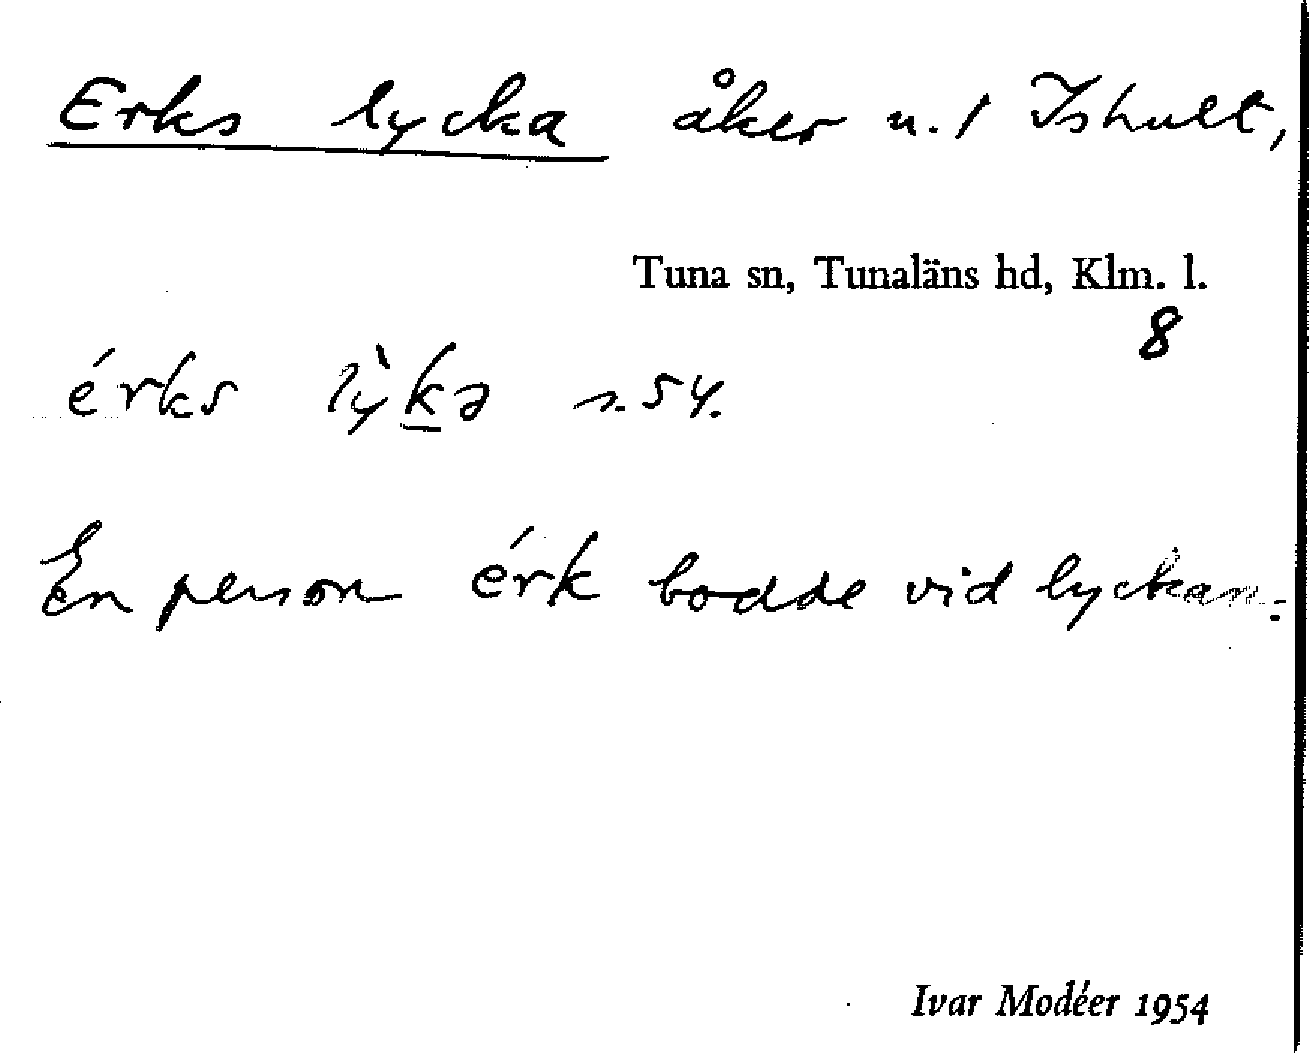 Erks lycka åker u. / Ishult,
Tuna sn, Tunaläns hd, Klm. l.
8
érks lỳkə s. 54.
En person érk bodde vid lyckan.
Ivar Modéer 1954